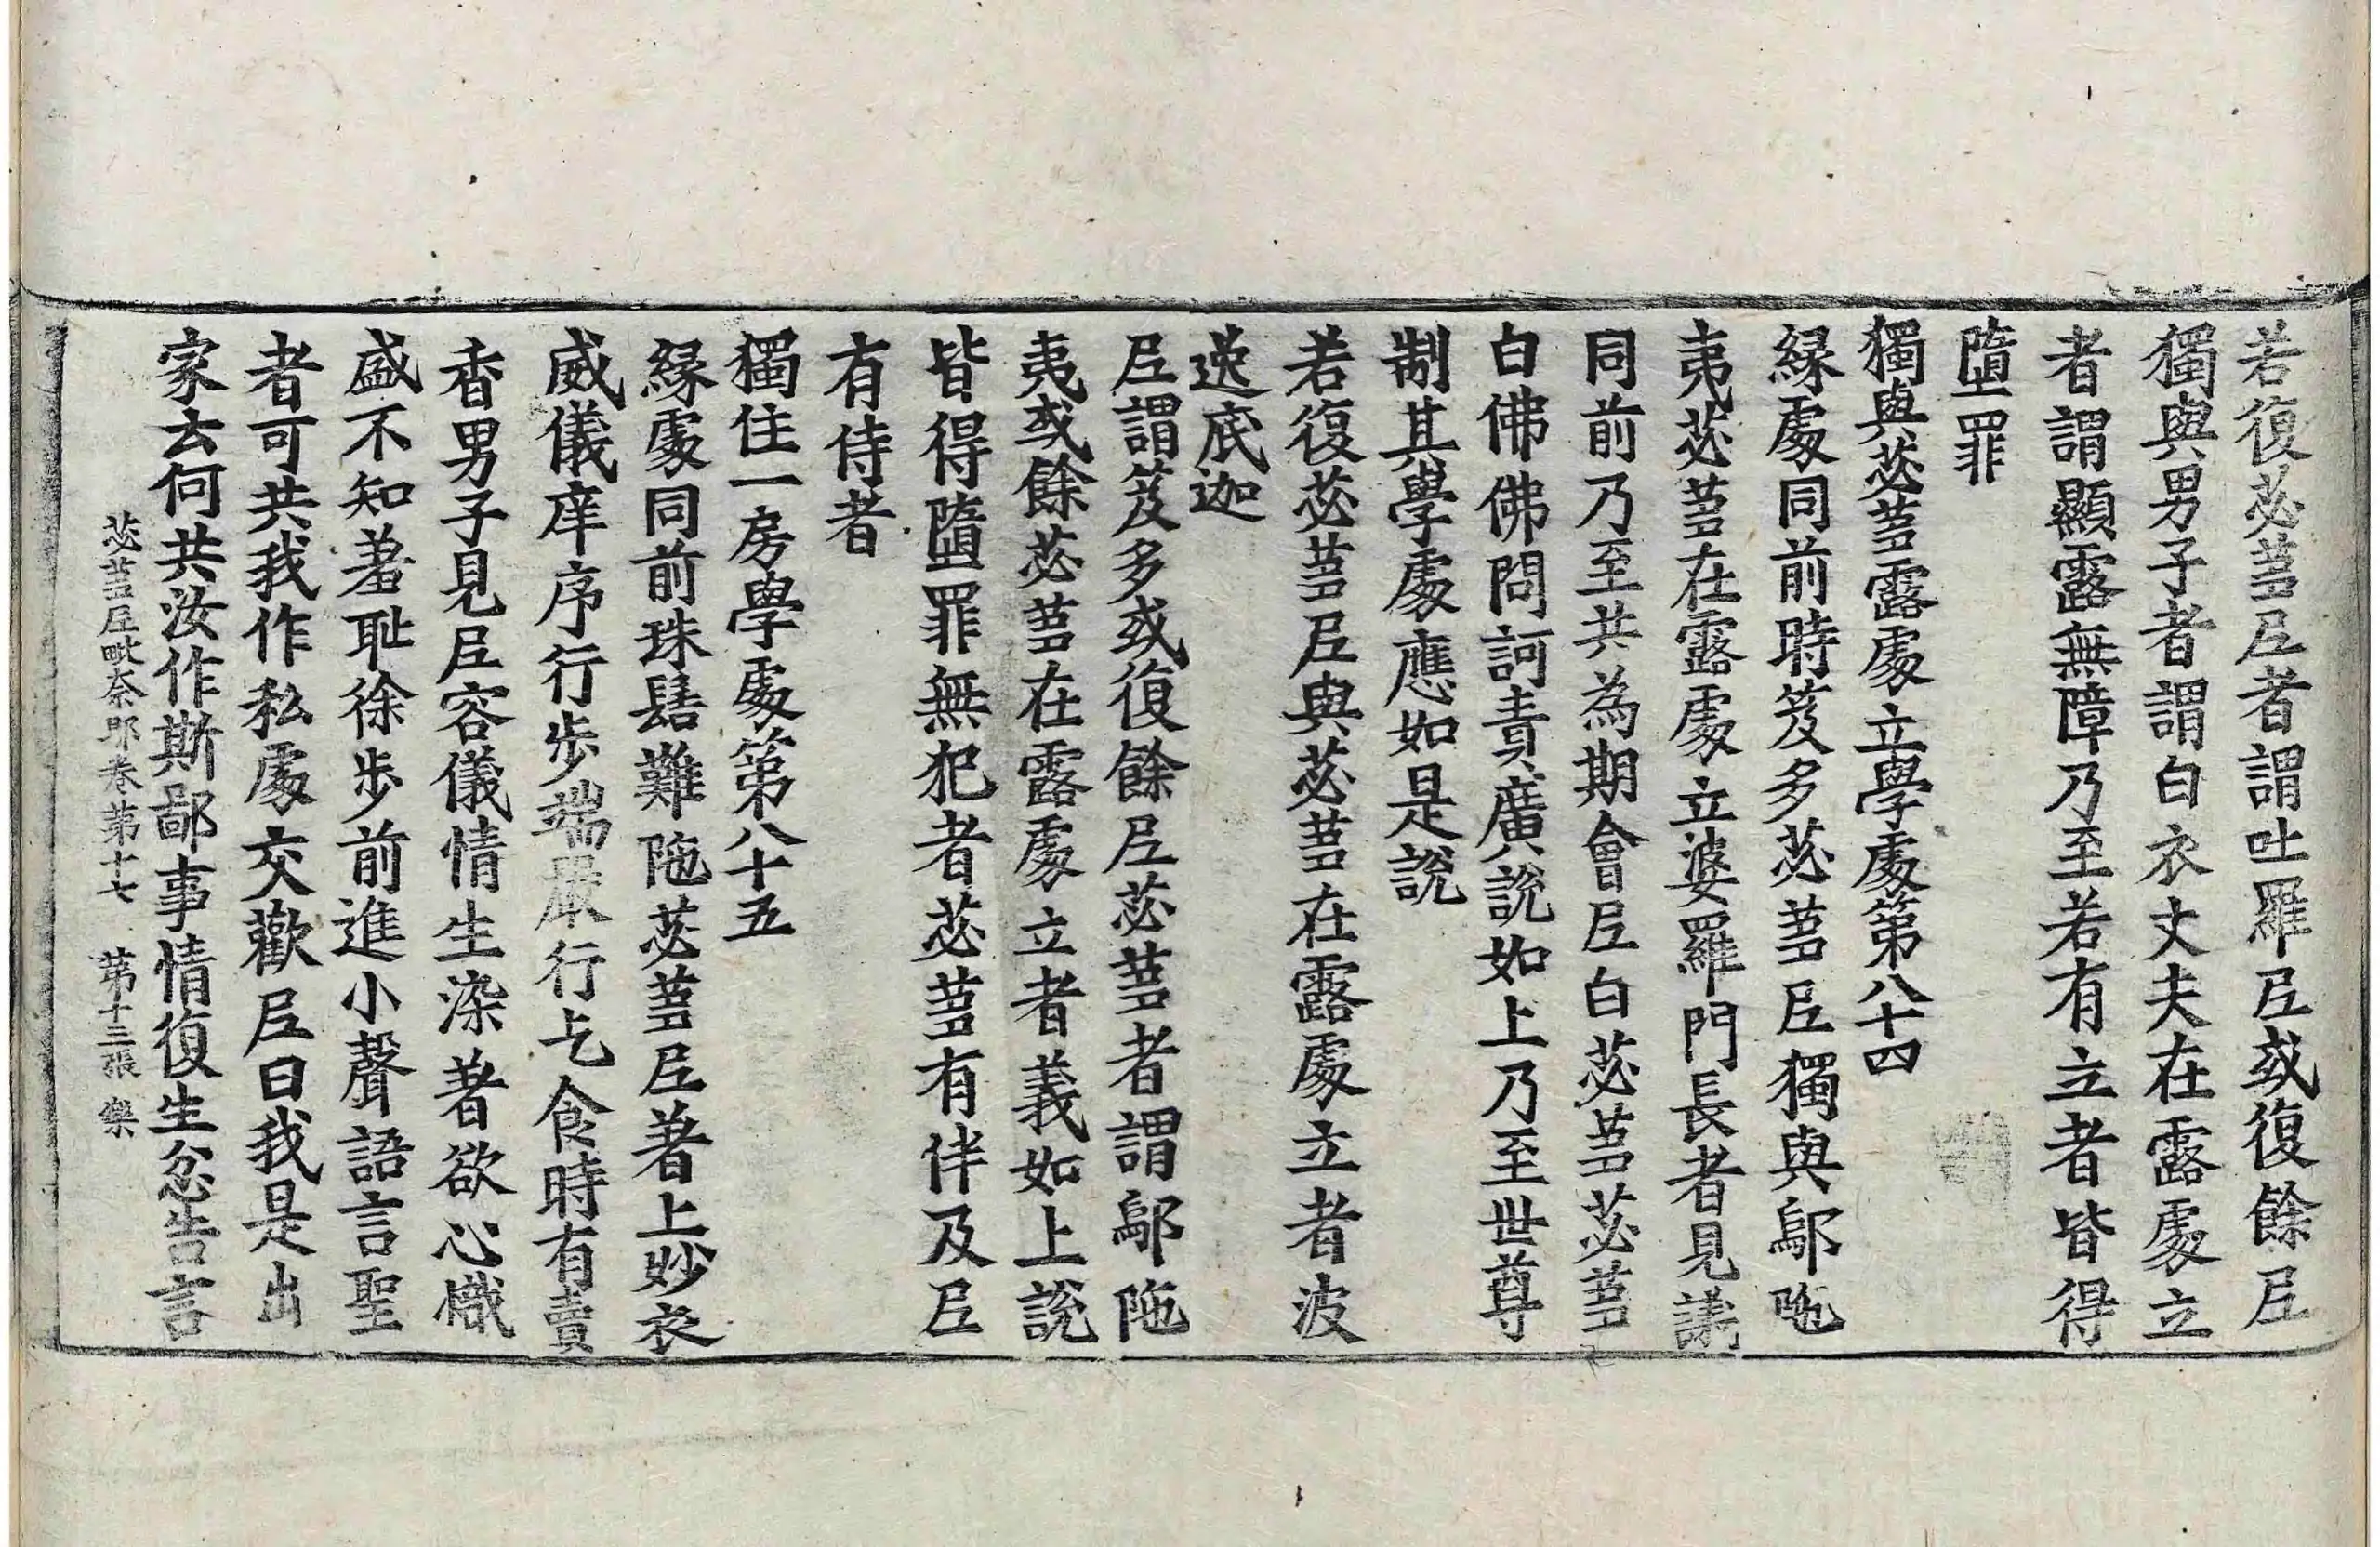 若復苾蒭𡰱者謂吐羅𡰱或復餘𡰱
獨與男子者謂白衣丈夫在露處立
者謂顯露無障乃至若有立者皆得
墮罪
獨與苾蒭露處立學處第八十四
緣處同前時笈多苾蒭𡰱獨與鄔陁
夷苾蒭在露處立婆羅門長者見譏
同前乃至共為期會𡰱白苾蒭苾蒭
白佛佛問訶責廣說如上乃至世尊
制其學處應如是說
若復苾蒭𡰱與苾蒭在露處立者波
逸底迦
𡰱謂笈多或復餘𡰱苾蒭者謂鄔陁
夷或餘苾蒭在露處立者義如上說
皆得墮罪無犯者苾蒭有伴及𡰱
有侍者
獨住一房學處第八十五
緣處同前珠髻難陁苾蒭𡰱著上妙衣
威儀庠序行步端嚴行乞食時有賣
香男子見𡰱容儀情生染著欲心熾
盛不知羞恥徐步前進小聲語言聖
者可共我作私處交歡𡰱曰我是出
家云何共汝作斯鄙事情復生忿告言
苾蒭𡰱毗奈耶卷第十七 第十三張 樂